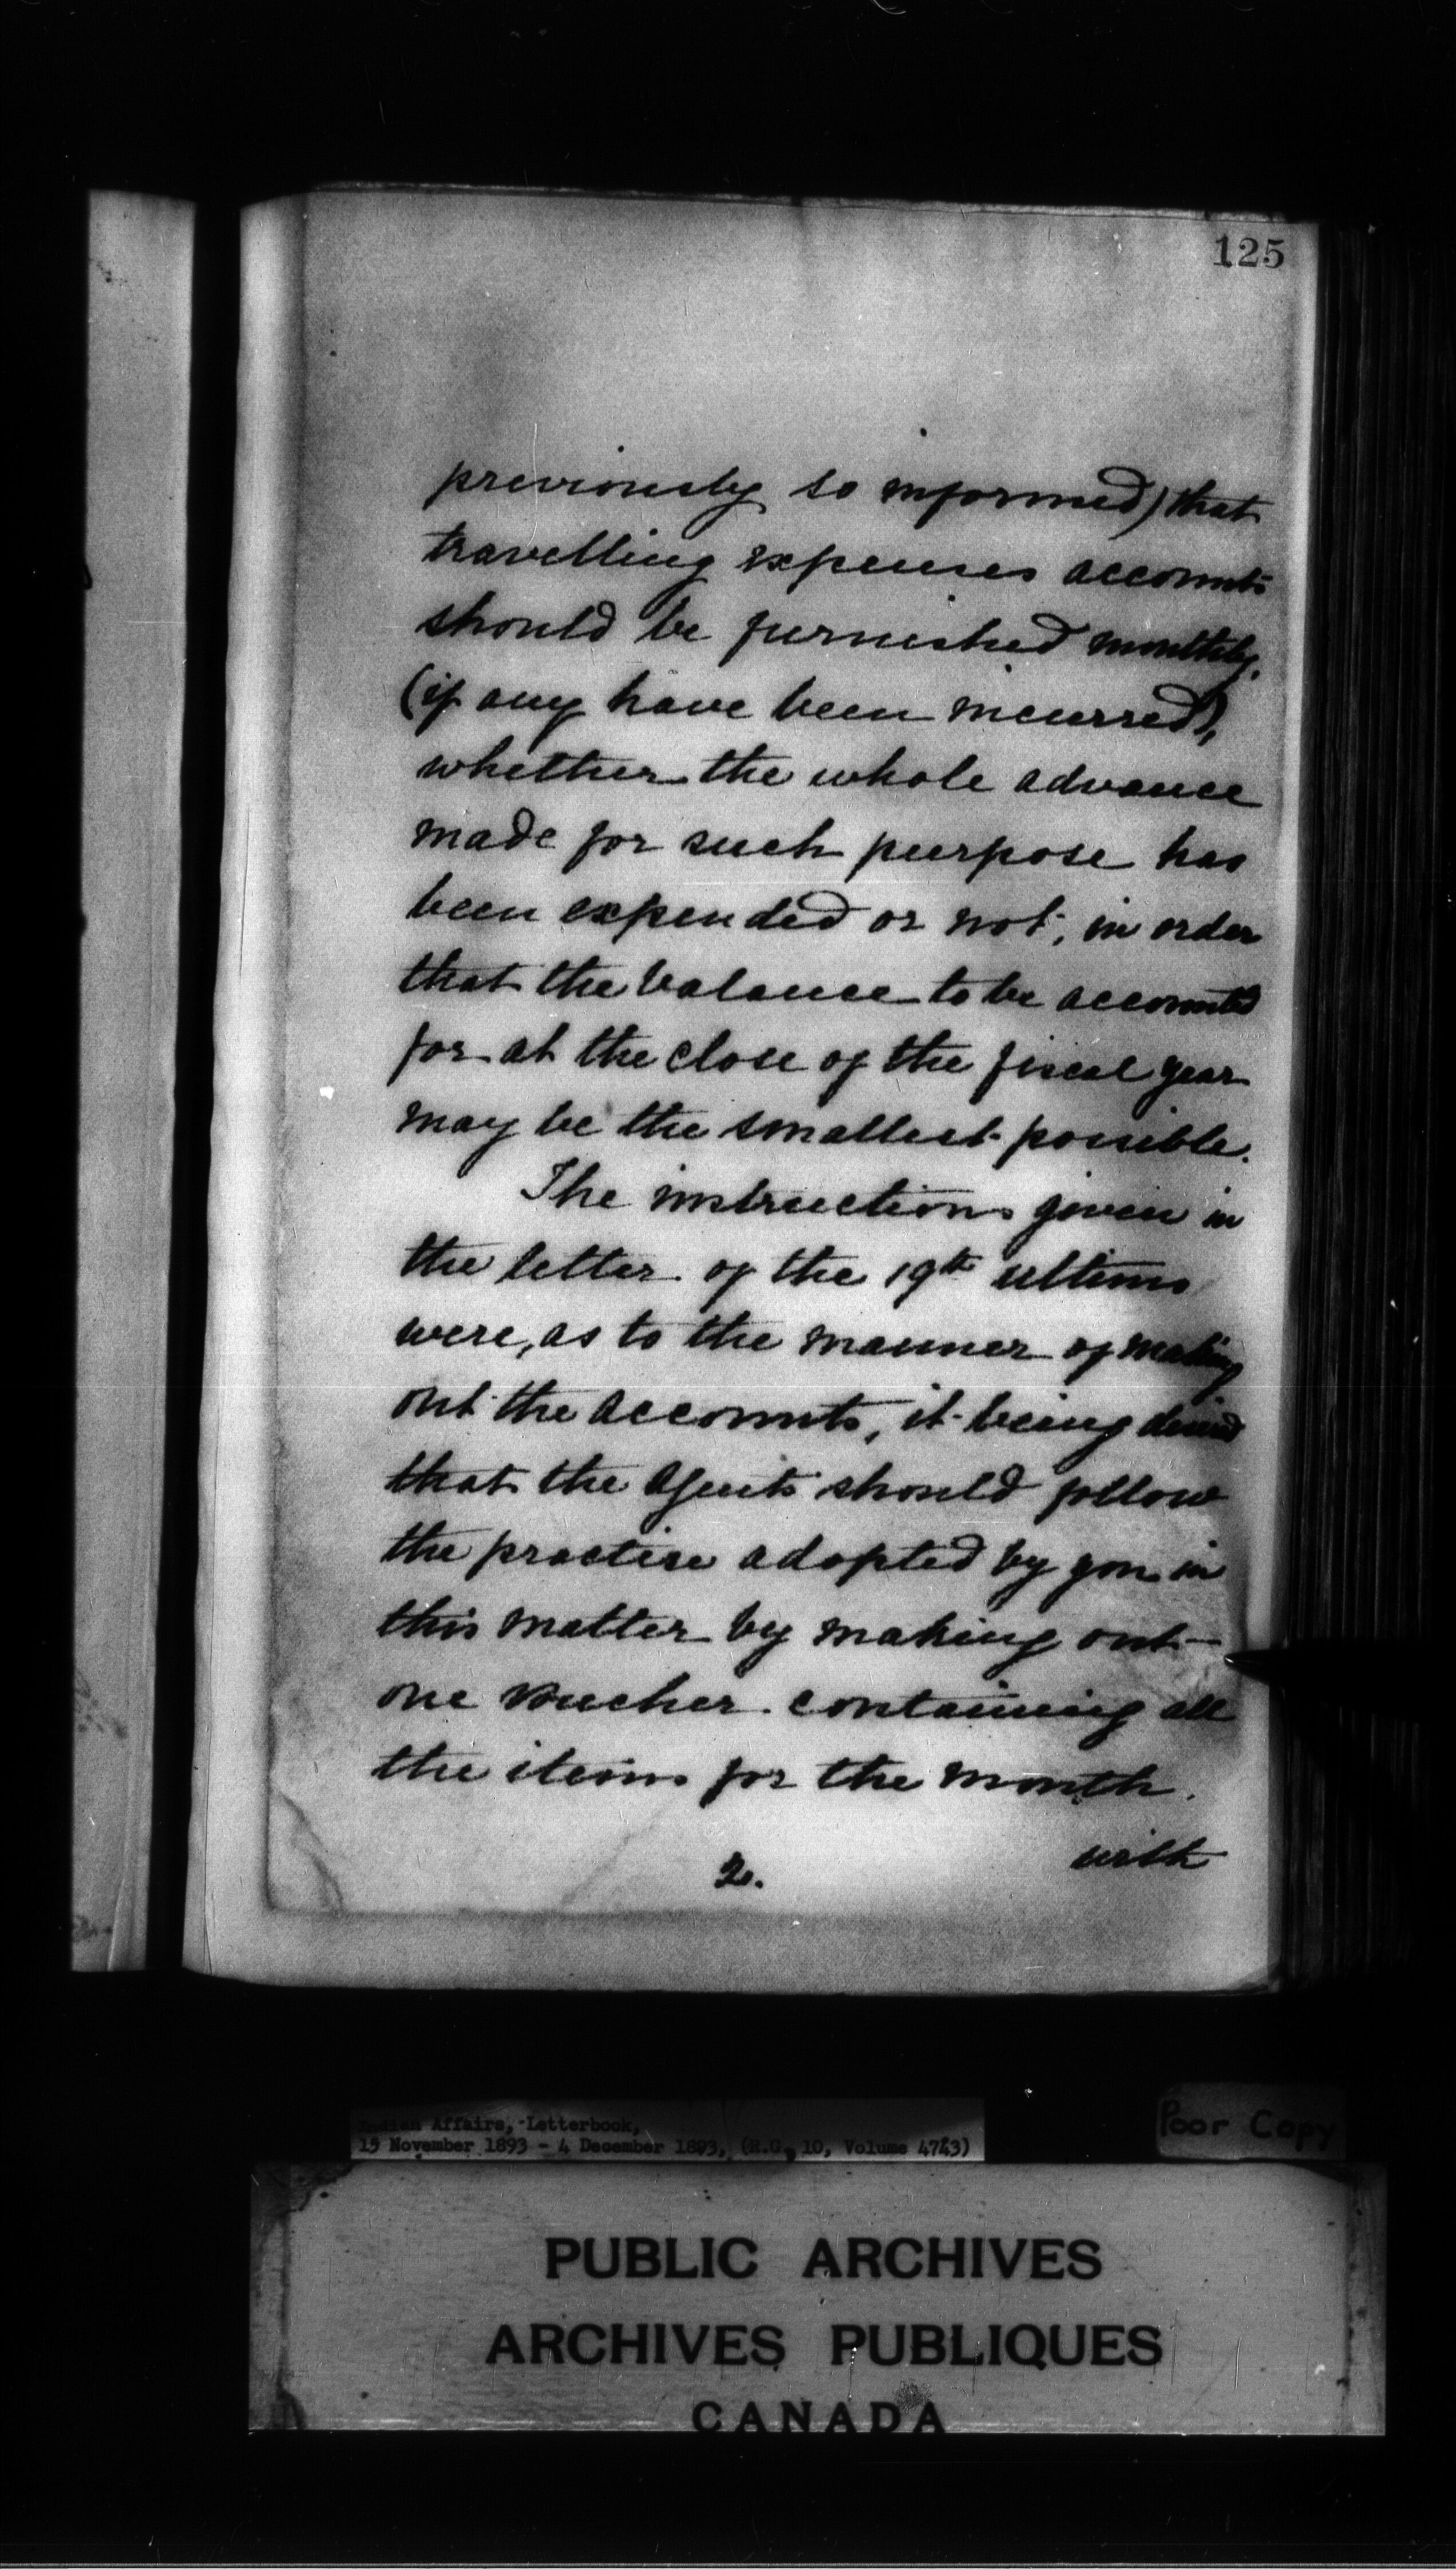 125
previously so informed) that
travelling expenses accounts
should be furnished monthly,
(if any have been incurred),
whether the whole advance
made for such purpose has
been expended or not, in order
that the balance to be accounted
for at the close of the fiscal year
may be the smallest possible.
The instructions given in
the letter of the 19th ultimo
were, as to the manner of making
out the accounts, it being desired
that the Agents should follow
the practise adopted by you in
this matter by making out
one voucher containing all
the items for the month.
with
2.
Indian Affairs, Letterbook,
15 November 1893 - 4 December 1893, (R.G. 10, Volume 4743)
Poor Copy
PUBLIC ARCHIVES
ARCHIVES PUBLIQUES
CANADA